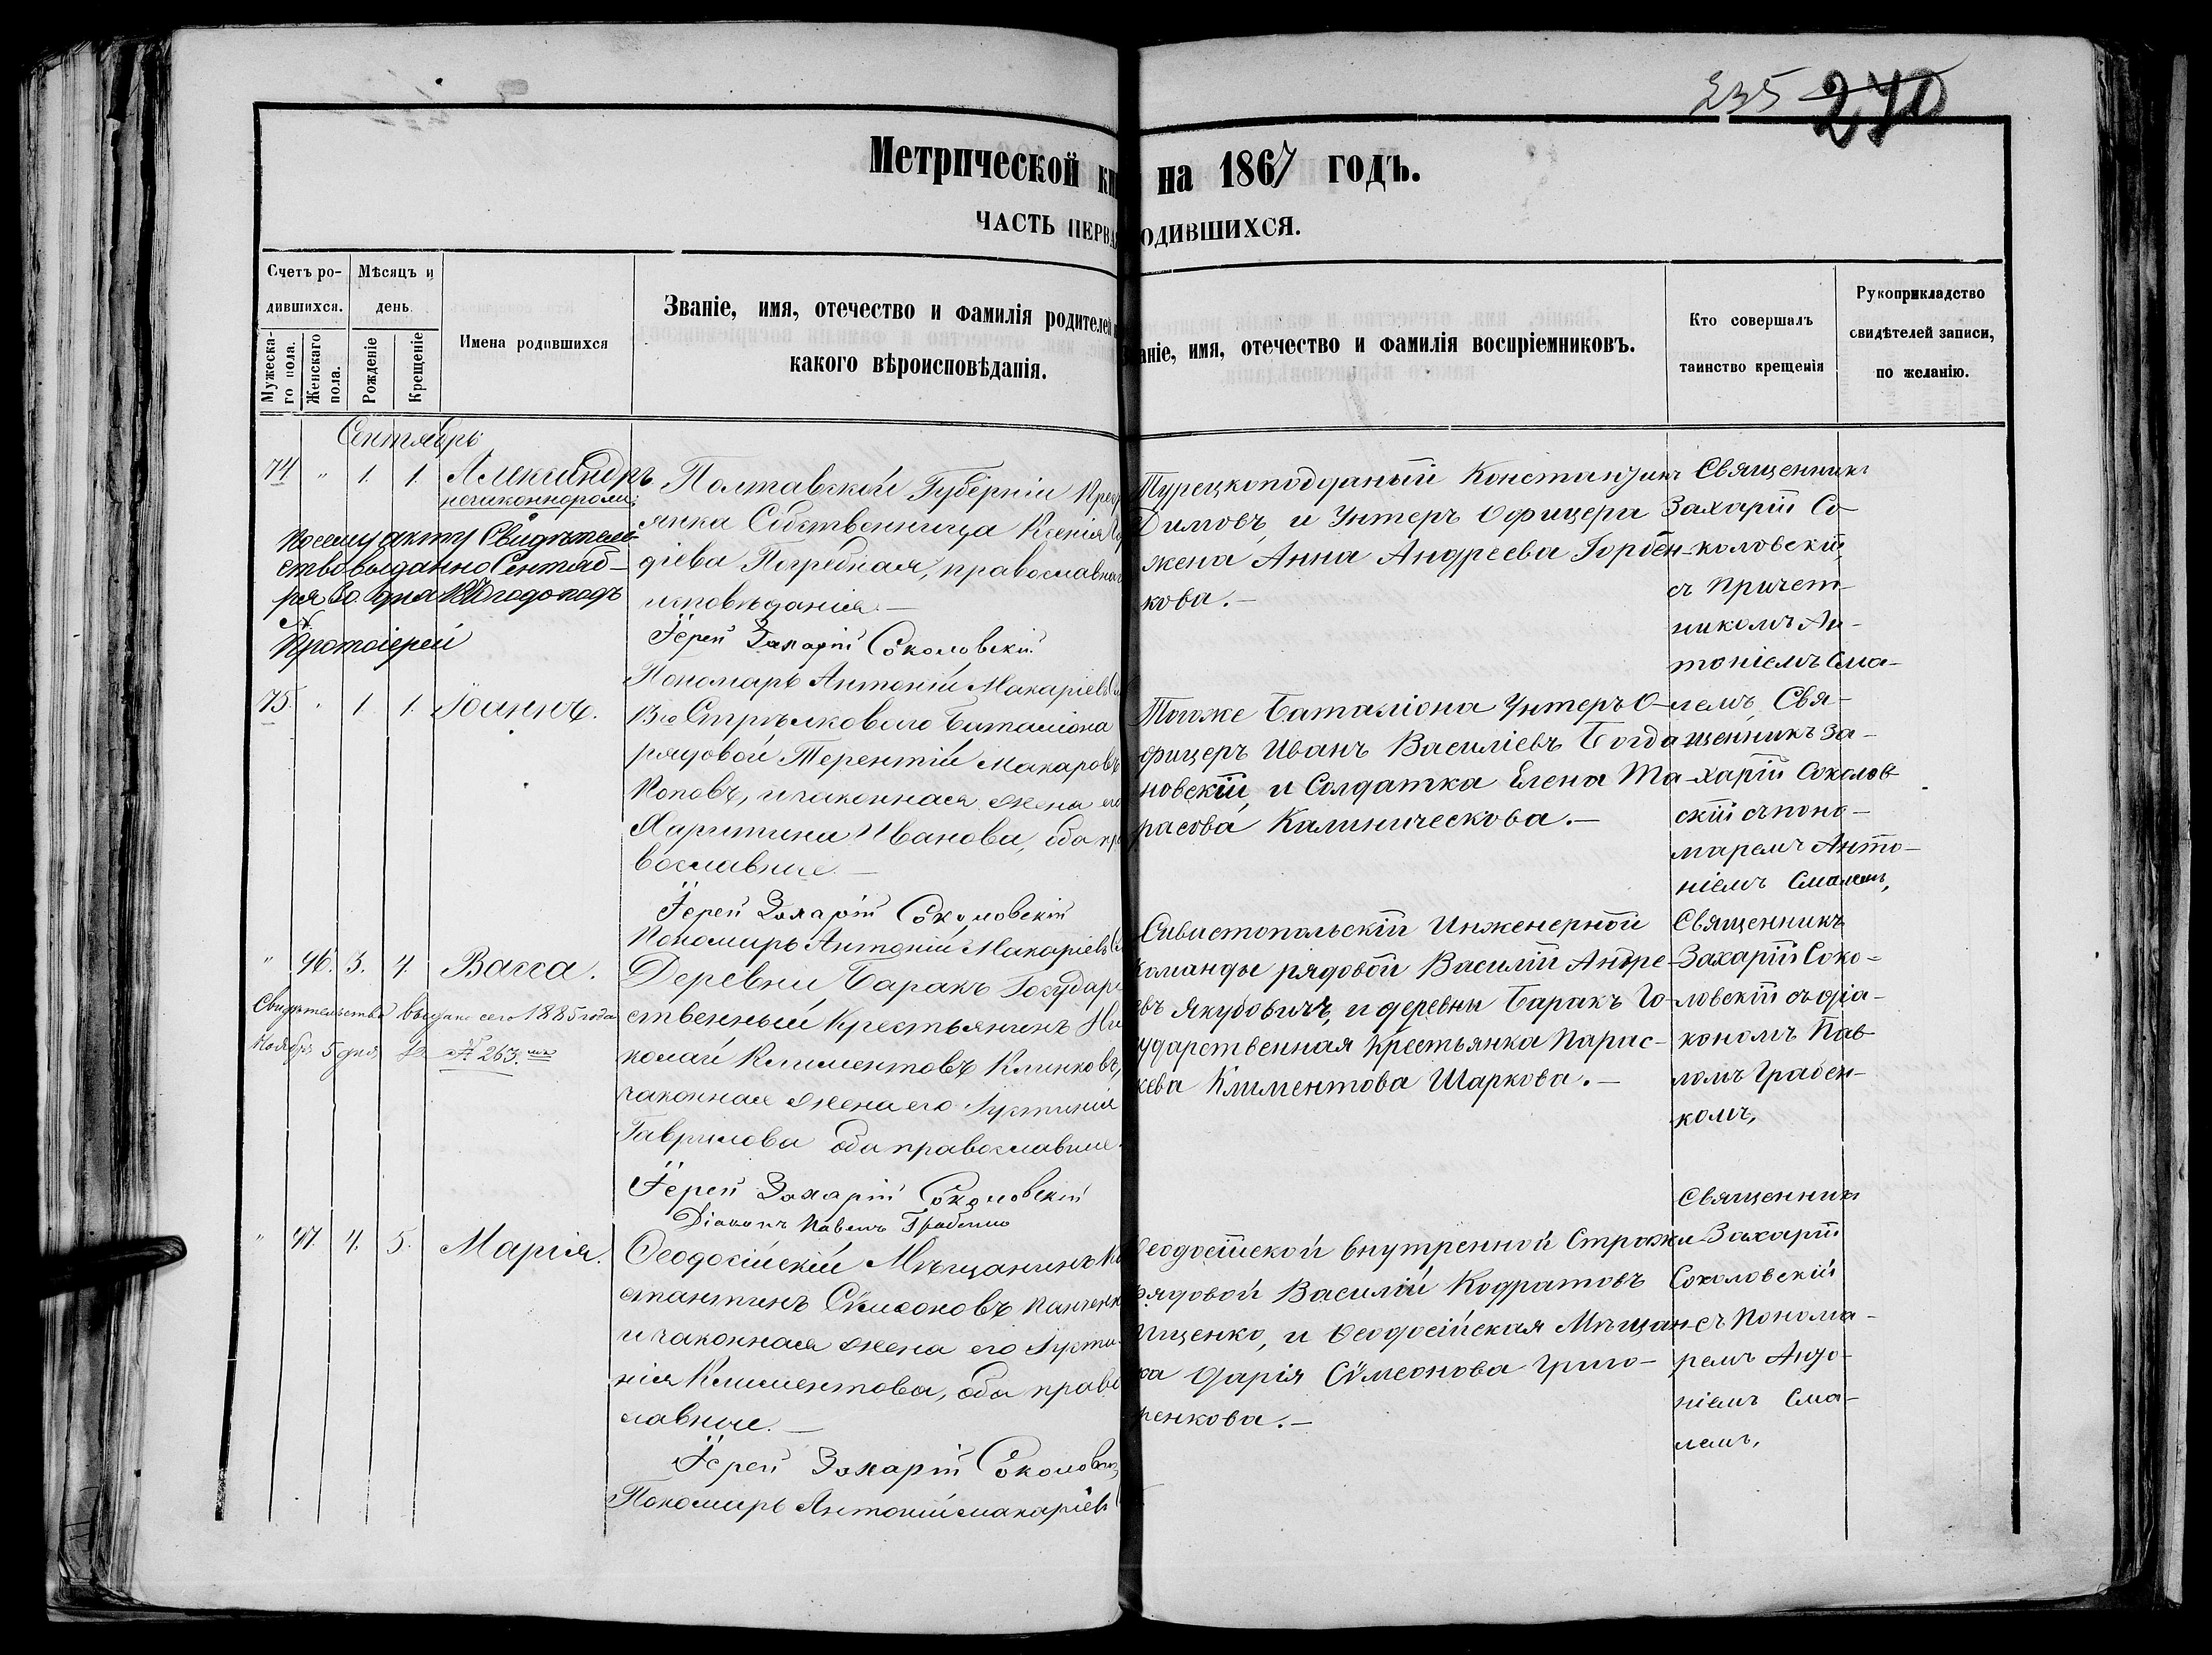 235 270
Метрической кн на 1867 годъ.
ЧАСТЬ ПЕРВА ОДИВШИХСЯ.
Счетъ ро-
дившихся.
Мѣсяцъ и
день
Мужеска-
го пола.
Женскаго
пола.
Рожденіе
Крещеніе
Имена родившихся
Званіе, имя, отечество и фамилія родителей
какого вѣроисповѣданія.
аніе, имя, отечество и фамилія воспріемниковъ.
Кто совершалъ
таинство крещенія
Рукоприкладство
свидѣтелей записи,
по желанію.
Сентябрь
74 " 1. 1. Александръ
незаконнорожд:
По сему акту Свидѣтель-
ство выданно Сентяб-
ря 20. дня годо подъ
№
Протоіерей
Полтавской Губерніи Кре
янка Собственница Ксенія
діева Погребная, православна
исповѣданія.—
Іерей Захарій Соколовскій
Пономарь Антоній Макаріевъ
Турецкоподданый Константинъ
Димовъ, и Унтеръ Офицера
жена Анна Андреева Горбен-
кова.—
Священникъ
Захарій Со-
коловскій
съ причет-
никомъ Ан-
тоніемъ Сма-
лемъ,
75. " 1. 1. Іоаннъ.
Стрѣлковаго Баталіона
рядовой Терентій Макаровъ
Поповъ, и законная жена его
Харитина Иванова, оба пра
вославные.—
Іерей Захарій Соколовскій
Пономарь Антоній Макаріевъ
Тогоже Баталіона Унтеръ О-
фицеръ Иванъ Василіевъ Богда
новскій, и Солдатка Елена Та-
расова Калиническова.—
Свя-
щенникъ За-
харій Соколов
скій съ поно-
маремъ Анто-
ніемъ Смалемъ,
" 46. 3. 4. Васса.
Свидѣтельство выдано сего 1885 года
Ноября 5 дня за № 263.
Деревни Баракъ Государ
ственный Крестьянинъ Ни
колай Климентовъ Клинковъ,
законная жена его Іустинія
Гаврилова оба православные.
Іерей Захарій Соколовскій
Діаконъ Павелъ Грабенко
Сивастопольскій Инженерной
команды рядовой Василій Андре-
евъ Якубовичъ, и деревни Баракъ Го-
ударственная Крестьянка Парас-
кева Климентова Шаркова.—
Священникъ
Захарій Соко-
ловскій съ діа-
кономъ Пав
ломъ Грабен-
комъ,
" 47. 4. 5. Марія.
Ѳеодосійскій Мѣщанинъ Ко
стантинъ Сѵмеоновъ Панченк
и законная жена его Іусти-
нія Климентова, оба право
славные.—
Іерей Захарій Соколовск
Пономарь Антоній Макаріев
еодосійской внутренной Стражи
рядовой Василій Кодратовъ
ищенко, и Ѳеодосійская Мѣщан-
ка Дарія Сѵмеонова Григо-
ренкова.—
Священникъ
Захарій
Соколовскій
съ Понома-
ремъ Анто-
ніемъ Сма-
лемъ,